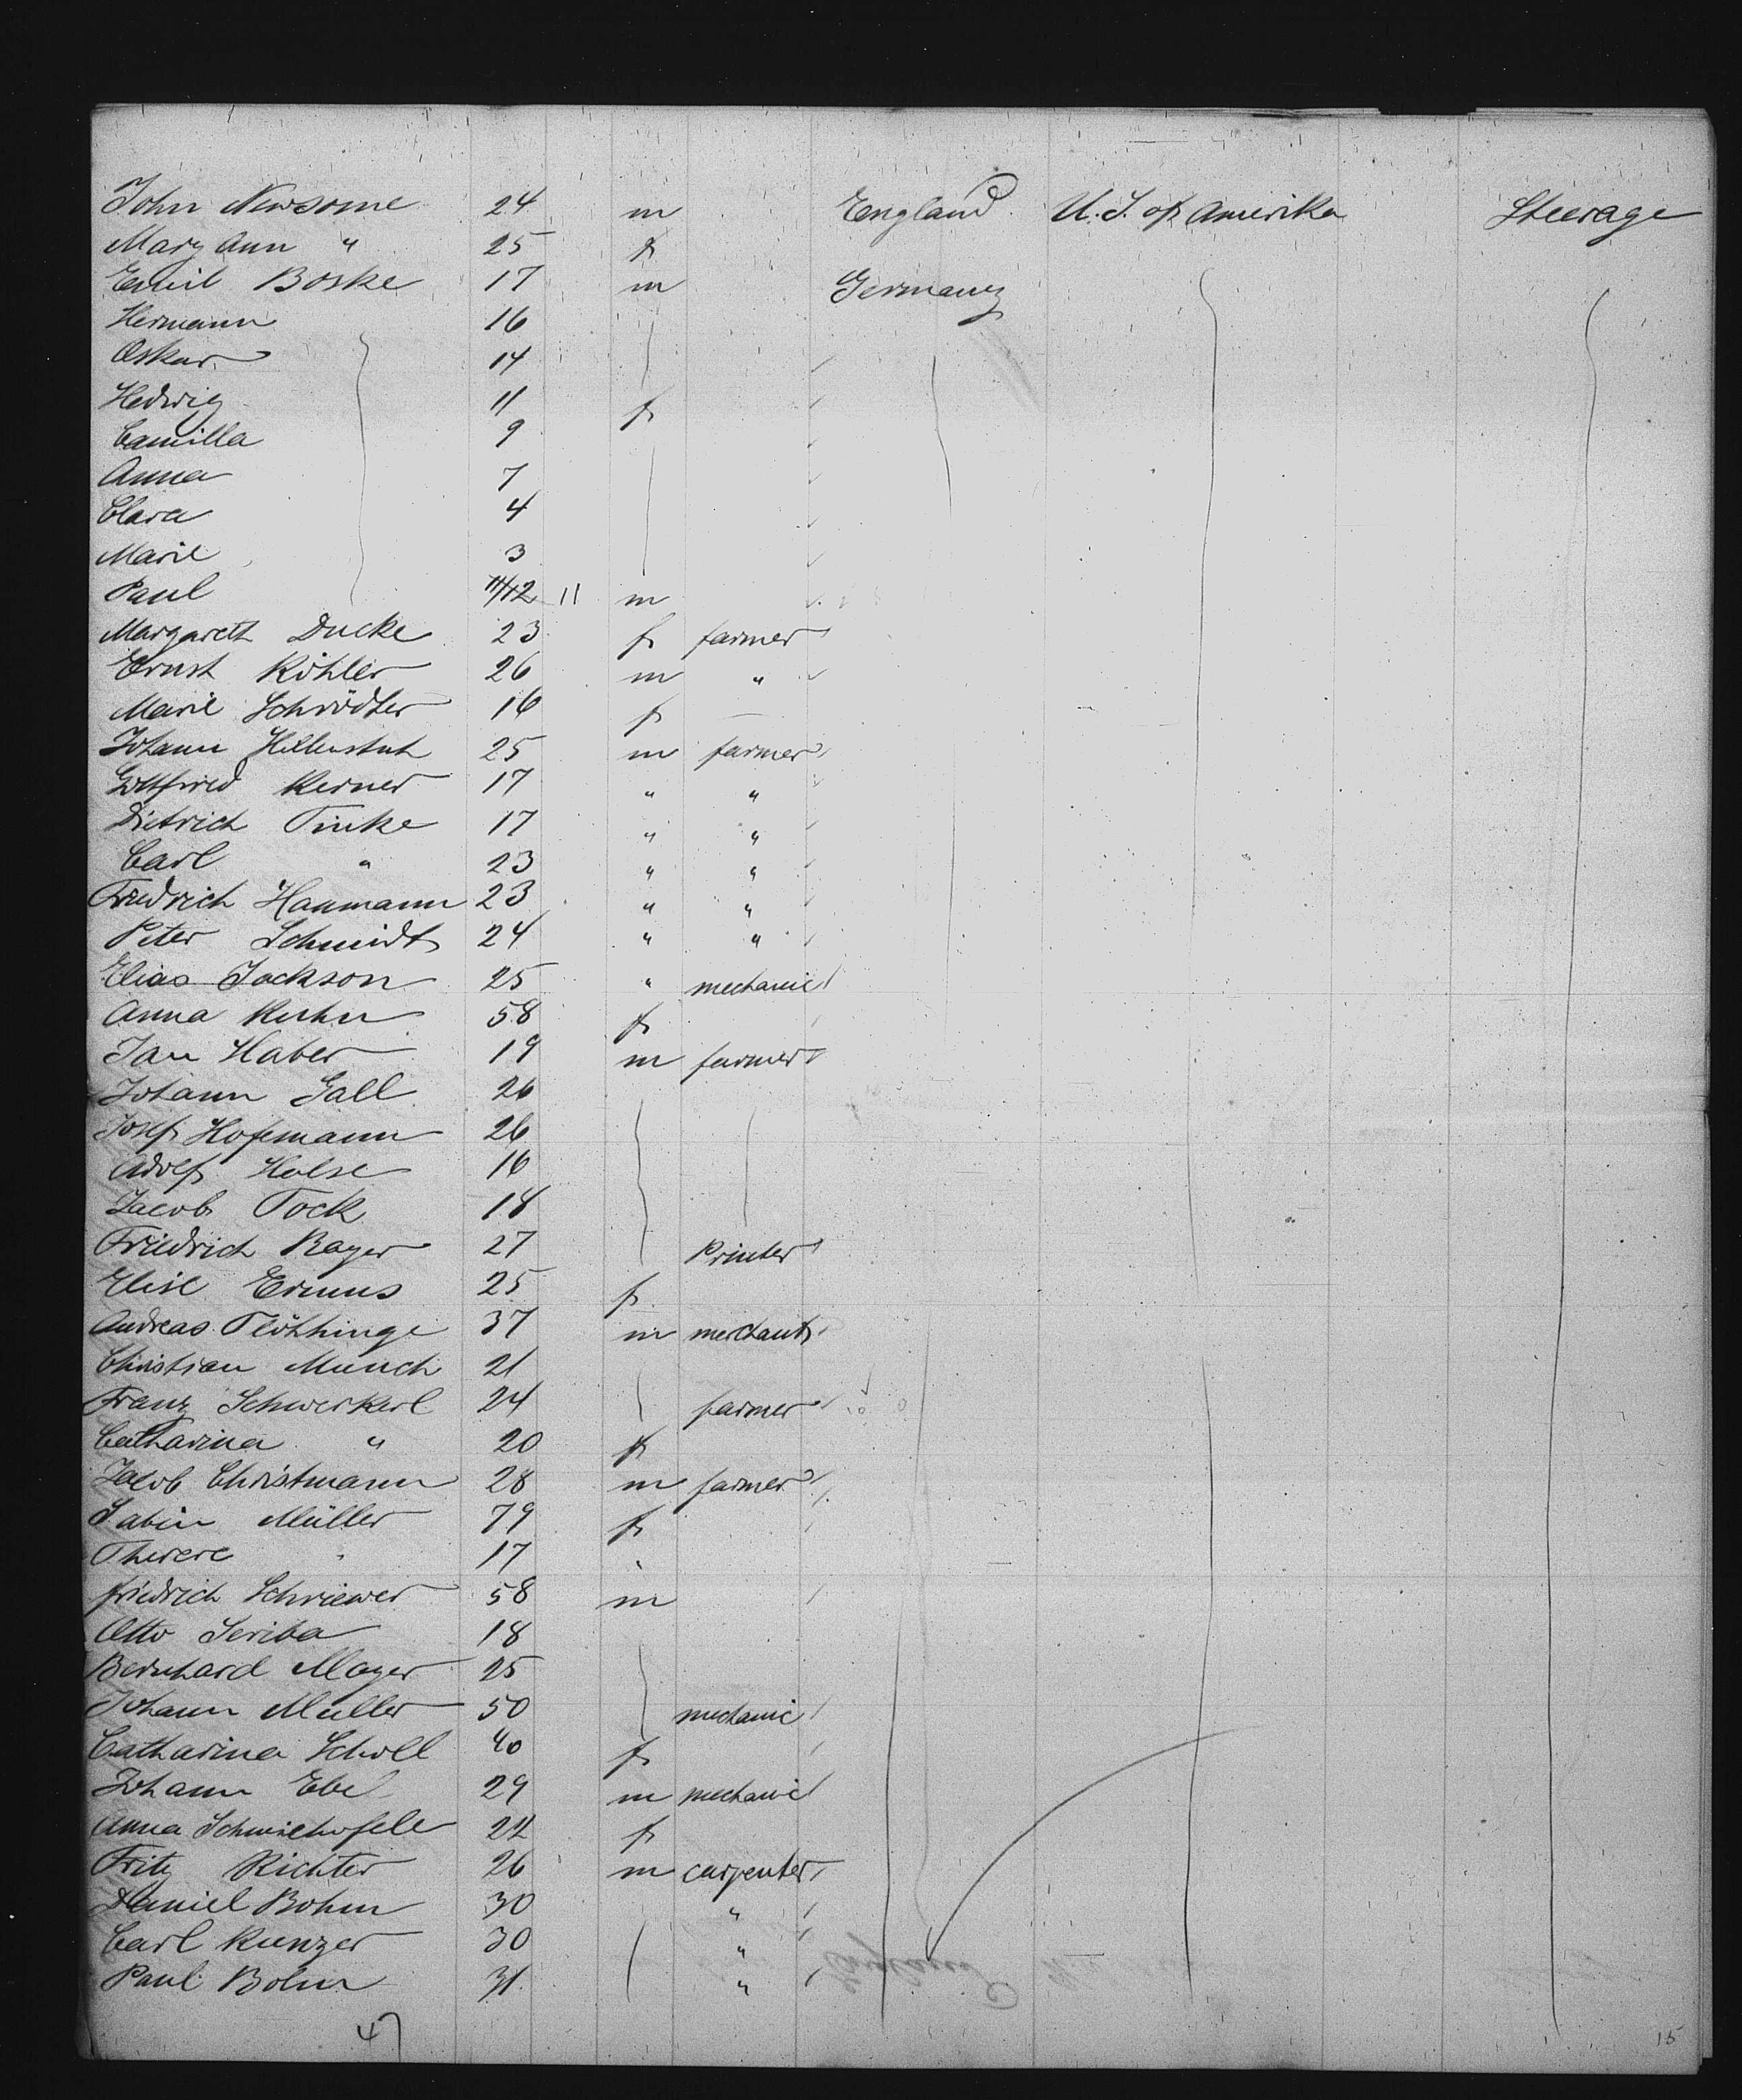 John Newsome 24 m England U. S. of Amerika Steerage
Mary Ann " 25 f
Emil Boske 17 m Germany
Hermann 16
Oskar 14
Hedwig 11 f
Camilla 9
Anna 7
Clara 4
Marie 3
Paul 11/12 11 m
Margareth Ducke 23 f farmer
Ernst Köhler 26 m "
Marie Schrödter 16 f —
Johann 25 m farmer
Gottfried Kerner 17 " "
Dietrich Finke 17 " "
Carl " 23 " "
Friedrich Haumann 23 " "
Peter Schmidt 24 " "
Elias Jackson 25 " mechanic
Anna Kuhn 58 f
Jan Haber 19 m farmer
Johann Gall 26
Josef Hofemann 26
Adolf Holse 16
Jacob Tock 18
Friedrich Bayer 27 Printer
Elise 25 f
Andreas 37 m merchant
Christian Munch 21
Franz Schwerkerl 24 farmer
Catharina " 20 f
Jacob Christmann 28 m farmer
Sabin Müller 79 f
Therese " 17 "
friedrich Schriewer 58 m
Otto Scriba 18
Bernhard Mayer 25
Johann Muller 50 mechanic
Catharina Scholl 40 f
Johann Ebel 29 m mechanic
Anna 22 f
Fritz Richter 26 m carpenter
Daniel Bohm 30 "
Carl Kunzer 30 "
Paul Bohm 31 "
47
15